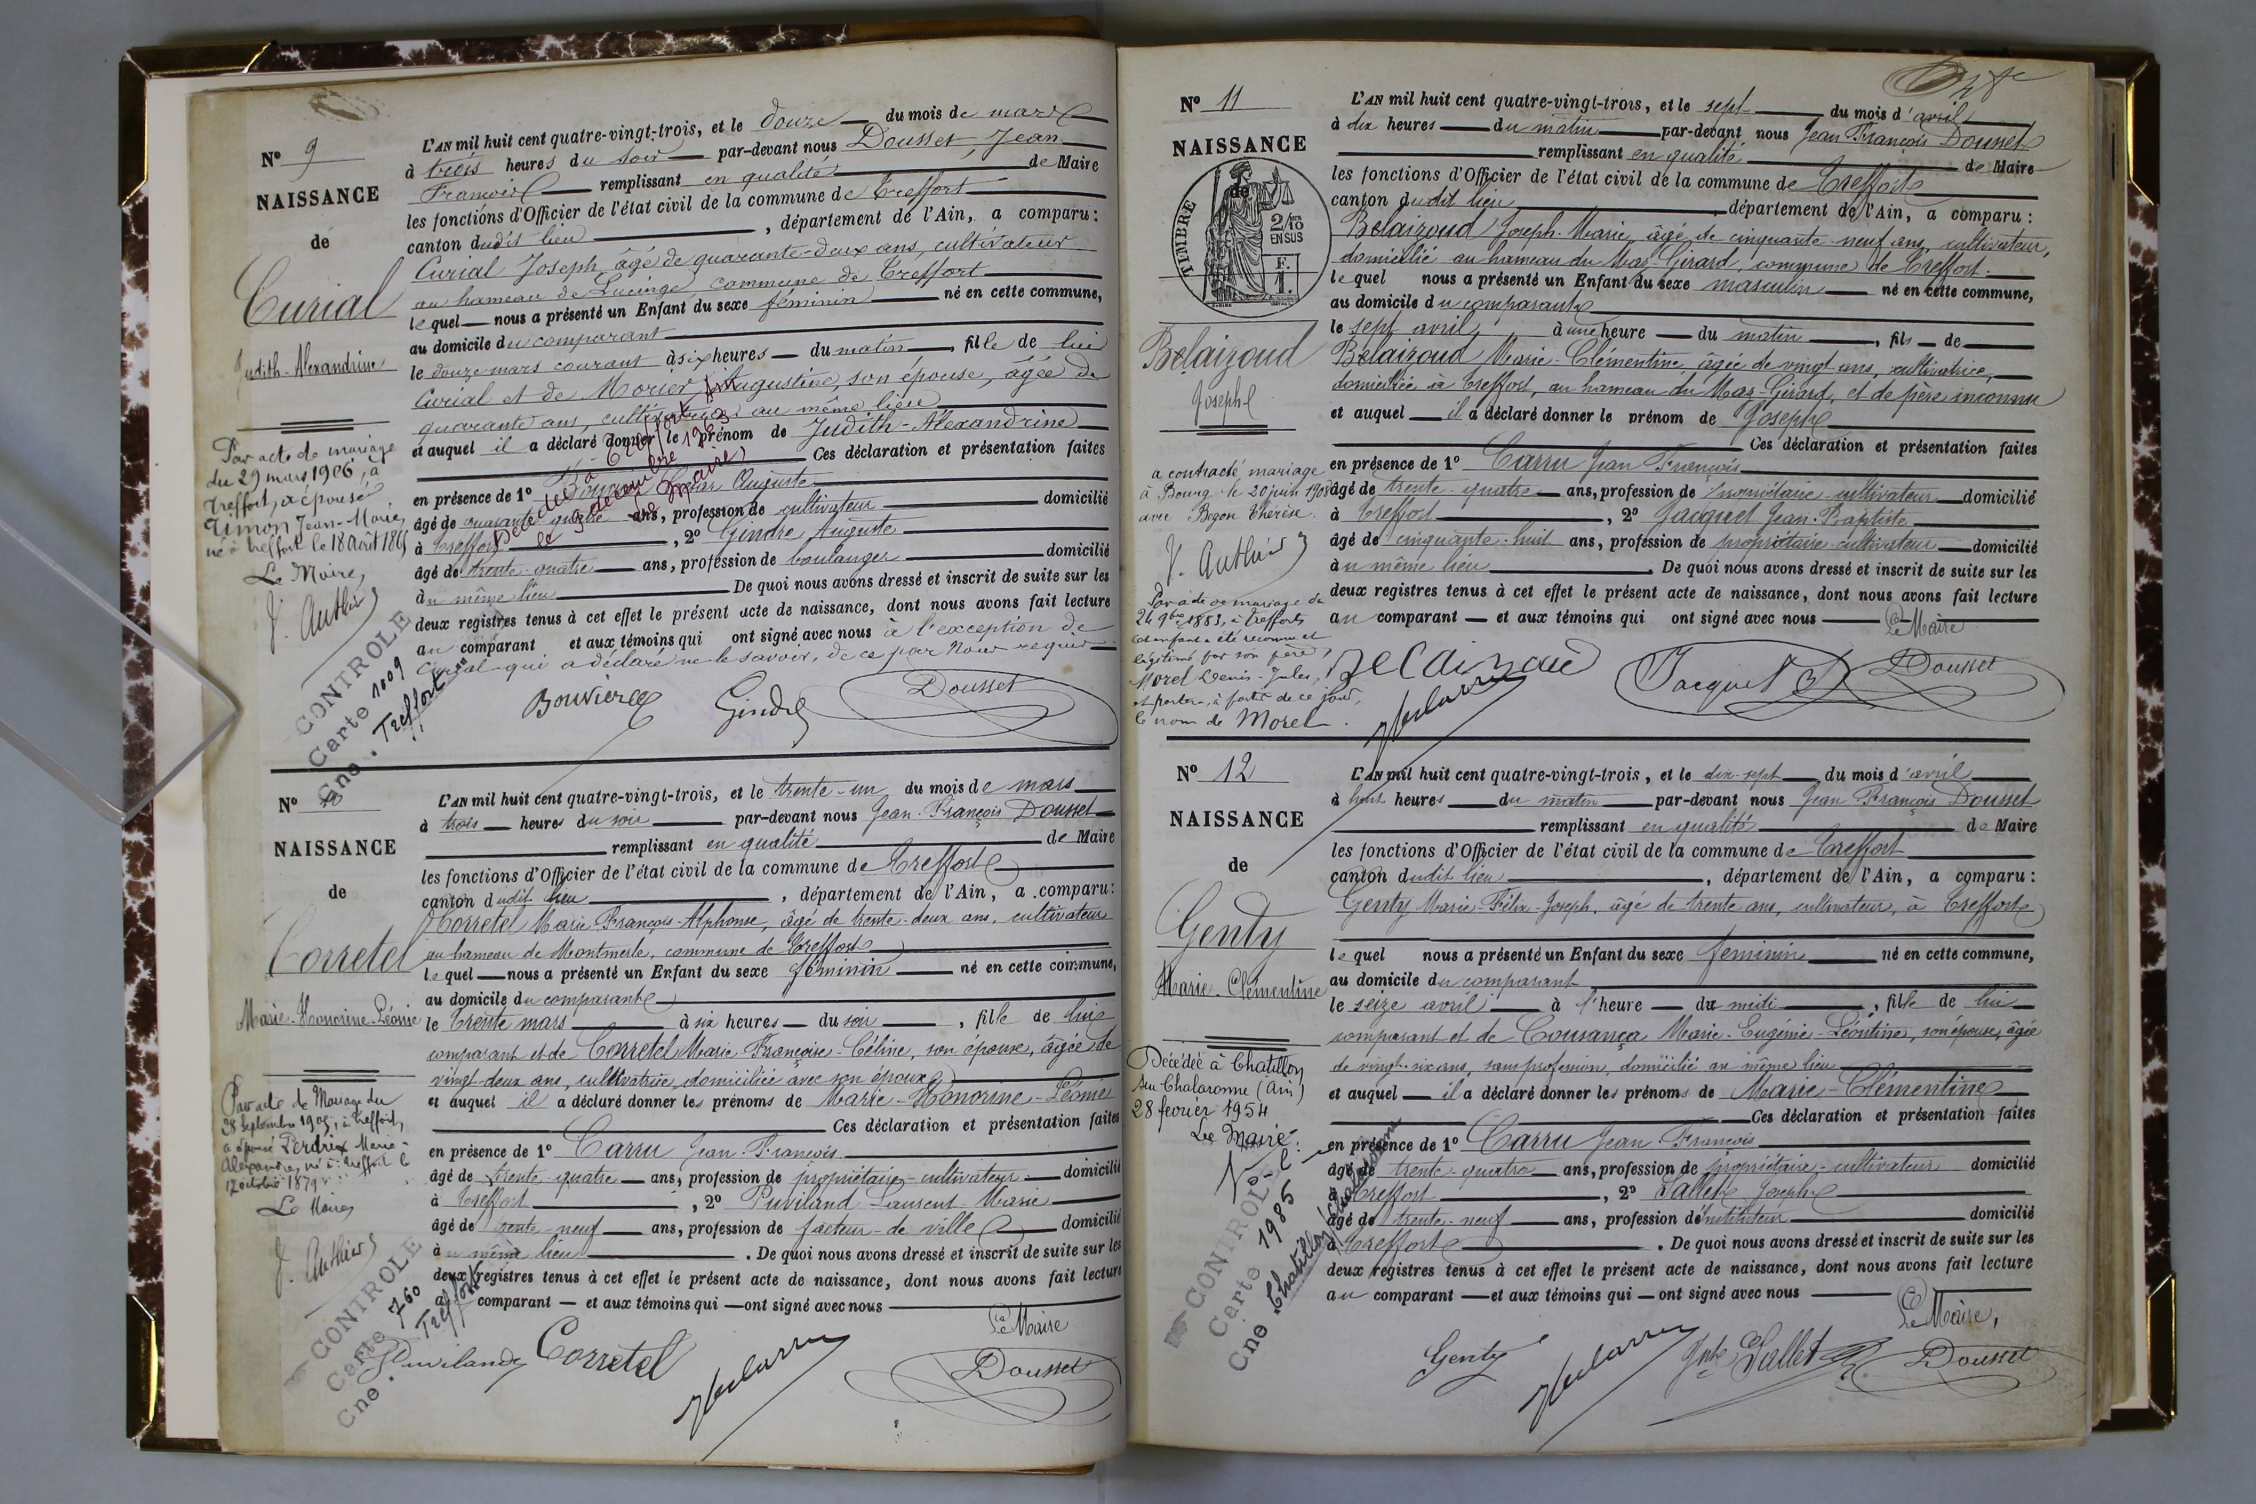 Nº 9
NAISSANCE
de
Curial
Judith-Alexandrine
Par acte de mariage
du 29 mars 1906, à
Treffort, a épousé
Jean-Marie
né à Treffort le 18 Août
Le Maire,
J. Authier
CONTROLE
Carte 1009
Cne. Treffort
L'AN mil huit cent quatre-vingt-trois, et le douze du mois de mars
à trois heures du soir par-devant nous Dousset, Jean
François remplissant en qualité de Maire
les fonctions d'Officier de l'état civil de la commune de Treffort
canton dudit lieu, département de l'Ain, a comparu:
Curial Joseph, âgé de quarante-deux ans, cultivateur
au hameau de Lucinge commune de Treffort
lequel nous a présenté un Enfant du sexe féminin né en cette commune,
au domicile du comparant
le douze mars courant à six heures du matin, fille de lui
Curial et de Morier Augustine, son épouse, âgée de
quarante ans, cultivatrice au même lieu
et auquel il a déclaré donner le prénom de Judith-Alexandrine
Ces déclaration et présentation faites
en présence de 1º Bouvier Auguste
âgé de quarante quatre ans, profession de cultivateur domicilié
à Treffort, 2º Gindre Auguste
âgé de trente-quatre ans, profession de boulanger domicilié
au même lieu De quoi nous avons dressé et inscrit de suite sur les
deux registres tenus à cet effet le présent acte de naissance, dont nous avons fait lecture
au comparant et aux témoins qui ont signé avec nous à l'exception de
Curial qui a déclaré ne le savoir, de ce par Nous requis
Décédée à Treffort
le 9 décembre 1963
Le Maire,
Bouvier Gindre Dousset
Nº 10
NAISSANCE
de
Corretel
Marie-Honorine-Léonie
Par acte de Mariage du
28 Septembre 1905, à Treffort,
a épousé Perdrix Marie-
Alexandre, né à Treffort le
17 octobre 1879
Le Maire,
J. Authier
CONTROLE
Carte 760
Cne. Treffort
L'AN mil huit cent quatre-vingt-trois, et le trente-un du mois de mars
à trois heures du soir par-devant nous Jean-François Dousset
remplissant en qualité de Maire
les fonctions d'Officier de l'état civil de la commune de Treffort
canton dudit lieu, département de l'Ain, a comparu:
Corretel Marie-François-Alphonse, âgé de trente-deux ans, cultivateur
au hameau de Montmerle, commune de Treffort
lequel nous a présenté un Enfant du sexe féminin né en cette commune,
au domicile du comparant
le trente mars à six heures du soir, fille de lui
comparant et de Corretel Marie Françoise-Céline, son épouse, âgée de
vingt deux ans, cultivatrice, domiciliée avec son époux
et auquel il a déclaré donner les prénoms de Marie-Honorine-Léonie
Ces déclaration et présentation faites
en présence de 1º Carru Jean-François
âgé de trente-quatre ans, profession de propriétaire-cultivateur domicilié
à Treffort, 2º Puviland Laurent Marie
âgé de trente-neuf ans, profession de facteur de ville domicilié
au même lieu. De quoi nous avons dressé et inscrit de suite sur les
deux registres tenus à cet effet le présent acte de naissance, dont nous avons fait lecture
au comparant et aux témoins qui ont signé avec nous
Le Maire
Puviland Corretel Dousset
Nº 11
NAISSANCE
de
TIMBRE
2/10
EN SUS
F.
1.
Belairoud
Joseph
a contracté mariage
à Bourg le 20 juin 1908
avec Begon Thérèse
J. Authier
Par acte de mariage du
24 9bre 1883, à Treffort
cet enfant a été reconnu et
légitimé par son père,
Morel Denis-Jules,
et portera, à partir de ce jour,
le nom de Morel.
L'AN mil huit cent quatre-vingt-trois, et le sept du mois d'avril
à dix heures du matin par-devant nous Jean François Dousset
remplissant en qualité de Maire
les fonctions d'Officier de l'état civil de la commune de Treffort
canton dudit lieu, département de l'Ain, a comparu:
Belairoud Joseph-Marie, âgé de cinquante-neuf ans, cultivateur,
domicilié au hameau du Mas-Girard, commune de Treffort
lequel nous a présenté un Enfant du sexe masculin né en cette commune,
au domicile du comparant
le sept avril à une heure du matin, fils de
Belairoud Marie-Clémentine, âgée de vingt ans, cultivatrice,
domiciliée à Treffort, au hameau du Mas-Girard, et de père inconnu
et auquel il a déclaré donner le prénom de Joseph
Ces déclaration et présentation faites
en présence de 1º Carru Jean François
âgé de trente-quatre ans, profession de propriétaire-cultivateur domicilié
à Treffort, 2º Jacquet Jean-Baptiste
âgé de cinquante-huit ans, profession de propriétaire-cultivateur domicilié
au même lieu. De quoi nous avons dressé et inscrit de suite sur les
deux registres tenus à cet effet le présent acte de naissance, dont nous avons fait lecture
au comparant et aux témoins qui ont signé avec nous
Le Maire
Jacquet Dousset
Nº 12
NAISSANCE
de
Genty
Marie-Clémentine
Décédée à Chatillon
sur Chalaronne (Ain)
28 fevrier 1954
Le Maire:
CONTROLE
Carte 1985
Cne. Chatillon s/Chalaronne
L'AN mil huit cent quatre-vingt-trois, et le dix-sept du mois d'avril
à huit heures du matin par-devant nous Jean François Dousset
remplissant en qualité de Maire
les fonctions d'Officier de l'état civil de la commune de Treffort
canton dudit lieu, département de l'Ain, a comparu:
Genty Marie-Félix-Joseph, âgé de trente ans, cultivateur, à Treffort
lequel nous a présenté un Enfant du sexe féminin né en cette commune,
au domicile du comparant
le seize avril à l'heure du midi, fille de lui
comparant et de Cousança Marie-Eugénie-Léontine, son épouse, âgée
de vingt-six ans, sans profession, domicilié au même lieu
et auquel il a déclaré donner les prénoms de Marie-Clémentine
Ces déclaration et présentation faites
en présence de 1º Carru Jean François
âgé de trente-quatre ans, profession de propriétaire-cultivateur domicilié
à Treffort, 2º Sallet Joseph
âgé de trente-neuf ans, profession d'instituteur domicilié
à Treffort. De quoi nous avons dressé et inscrit de suite sur les
deux registres tenus à cet effet le présent acte de naissance, dont nous avons fait lecture
au comparant et aux témoins qui ont signé avec nous
Le Maire,
Genty Sallet Dousset